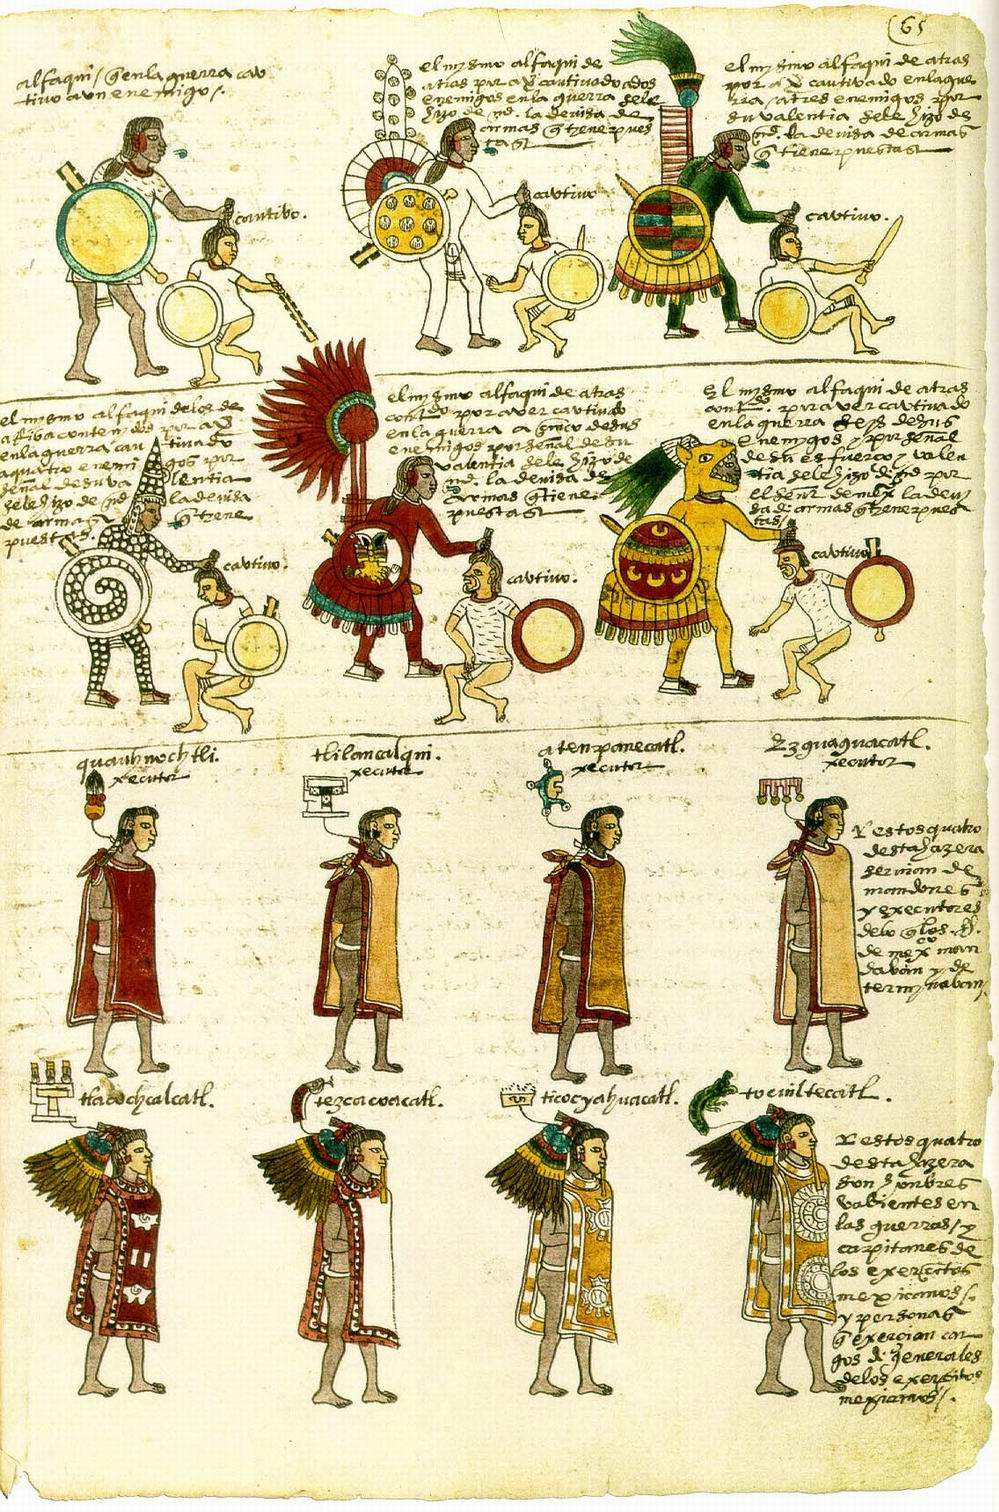 65
alfaqui / q̃ en la guerra cau
tivo a un enemigo /.
cautivo.
el mysmo alfaqui de
atras por a
cautivado a dos
enemigos en la guerra sele
hizo de
la devisa de
armas q̃ tiene pues
tas
cautivo
el mysmo alfaqui de atras
por a
cautivado en la gue
rra / a tres enemigos por
su valentia sele hizo de
la devisa de armas
q̃ tiene puestas
cautivo.
el mysmo alfaqui delos de
arriba contenidos por
en la guerra cau tivado
a quatro enemi gos por
señal de su va lentia
sele hizo de
la devisa
de armas q̃ tiene
puestas.
cautivo.
el mysmo alfaqui de atras
por aver cautivado
en la guerra a cinco de sus
enemigos por señal de su
valentia sele hizo de
la devisa de
armas q̃ tiene
puestas
cautivo.
El mysmo alfaqui de atras
por aver cautivado
en la guerra seys de sus
enemigos y por señal
de su esfuerço y valen
tia sele hizo
por
el señor de mexco la devi
sa de armas q̃ tiene pues
tas /
cautivo
quauhnochtli.
xecutor
tlilancalqui.
xecutor
atenpanecatl.
xecutor
Ezguaguacatl.
xecutor
Y estos quatro
desta hazera
servian de
mandones
y executores
delo
de mexco man
davan y de
termynavan /
tlacochcalcatl.
tezcacoacatl.
ticocyahuacatl.
tocuiltecatl.
Y estos quatro
desta hazera
son honbres
valientes en
las guerras / y
capitanes de
los exercitos
mexicanos /.
y personas
q̃ exercian car
gos de generales
delos exercitos
mexicanos /.